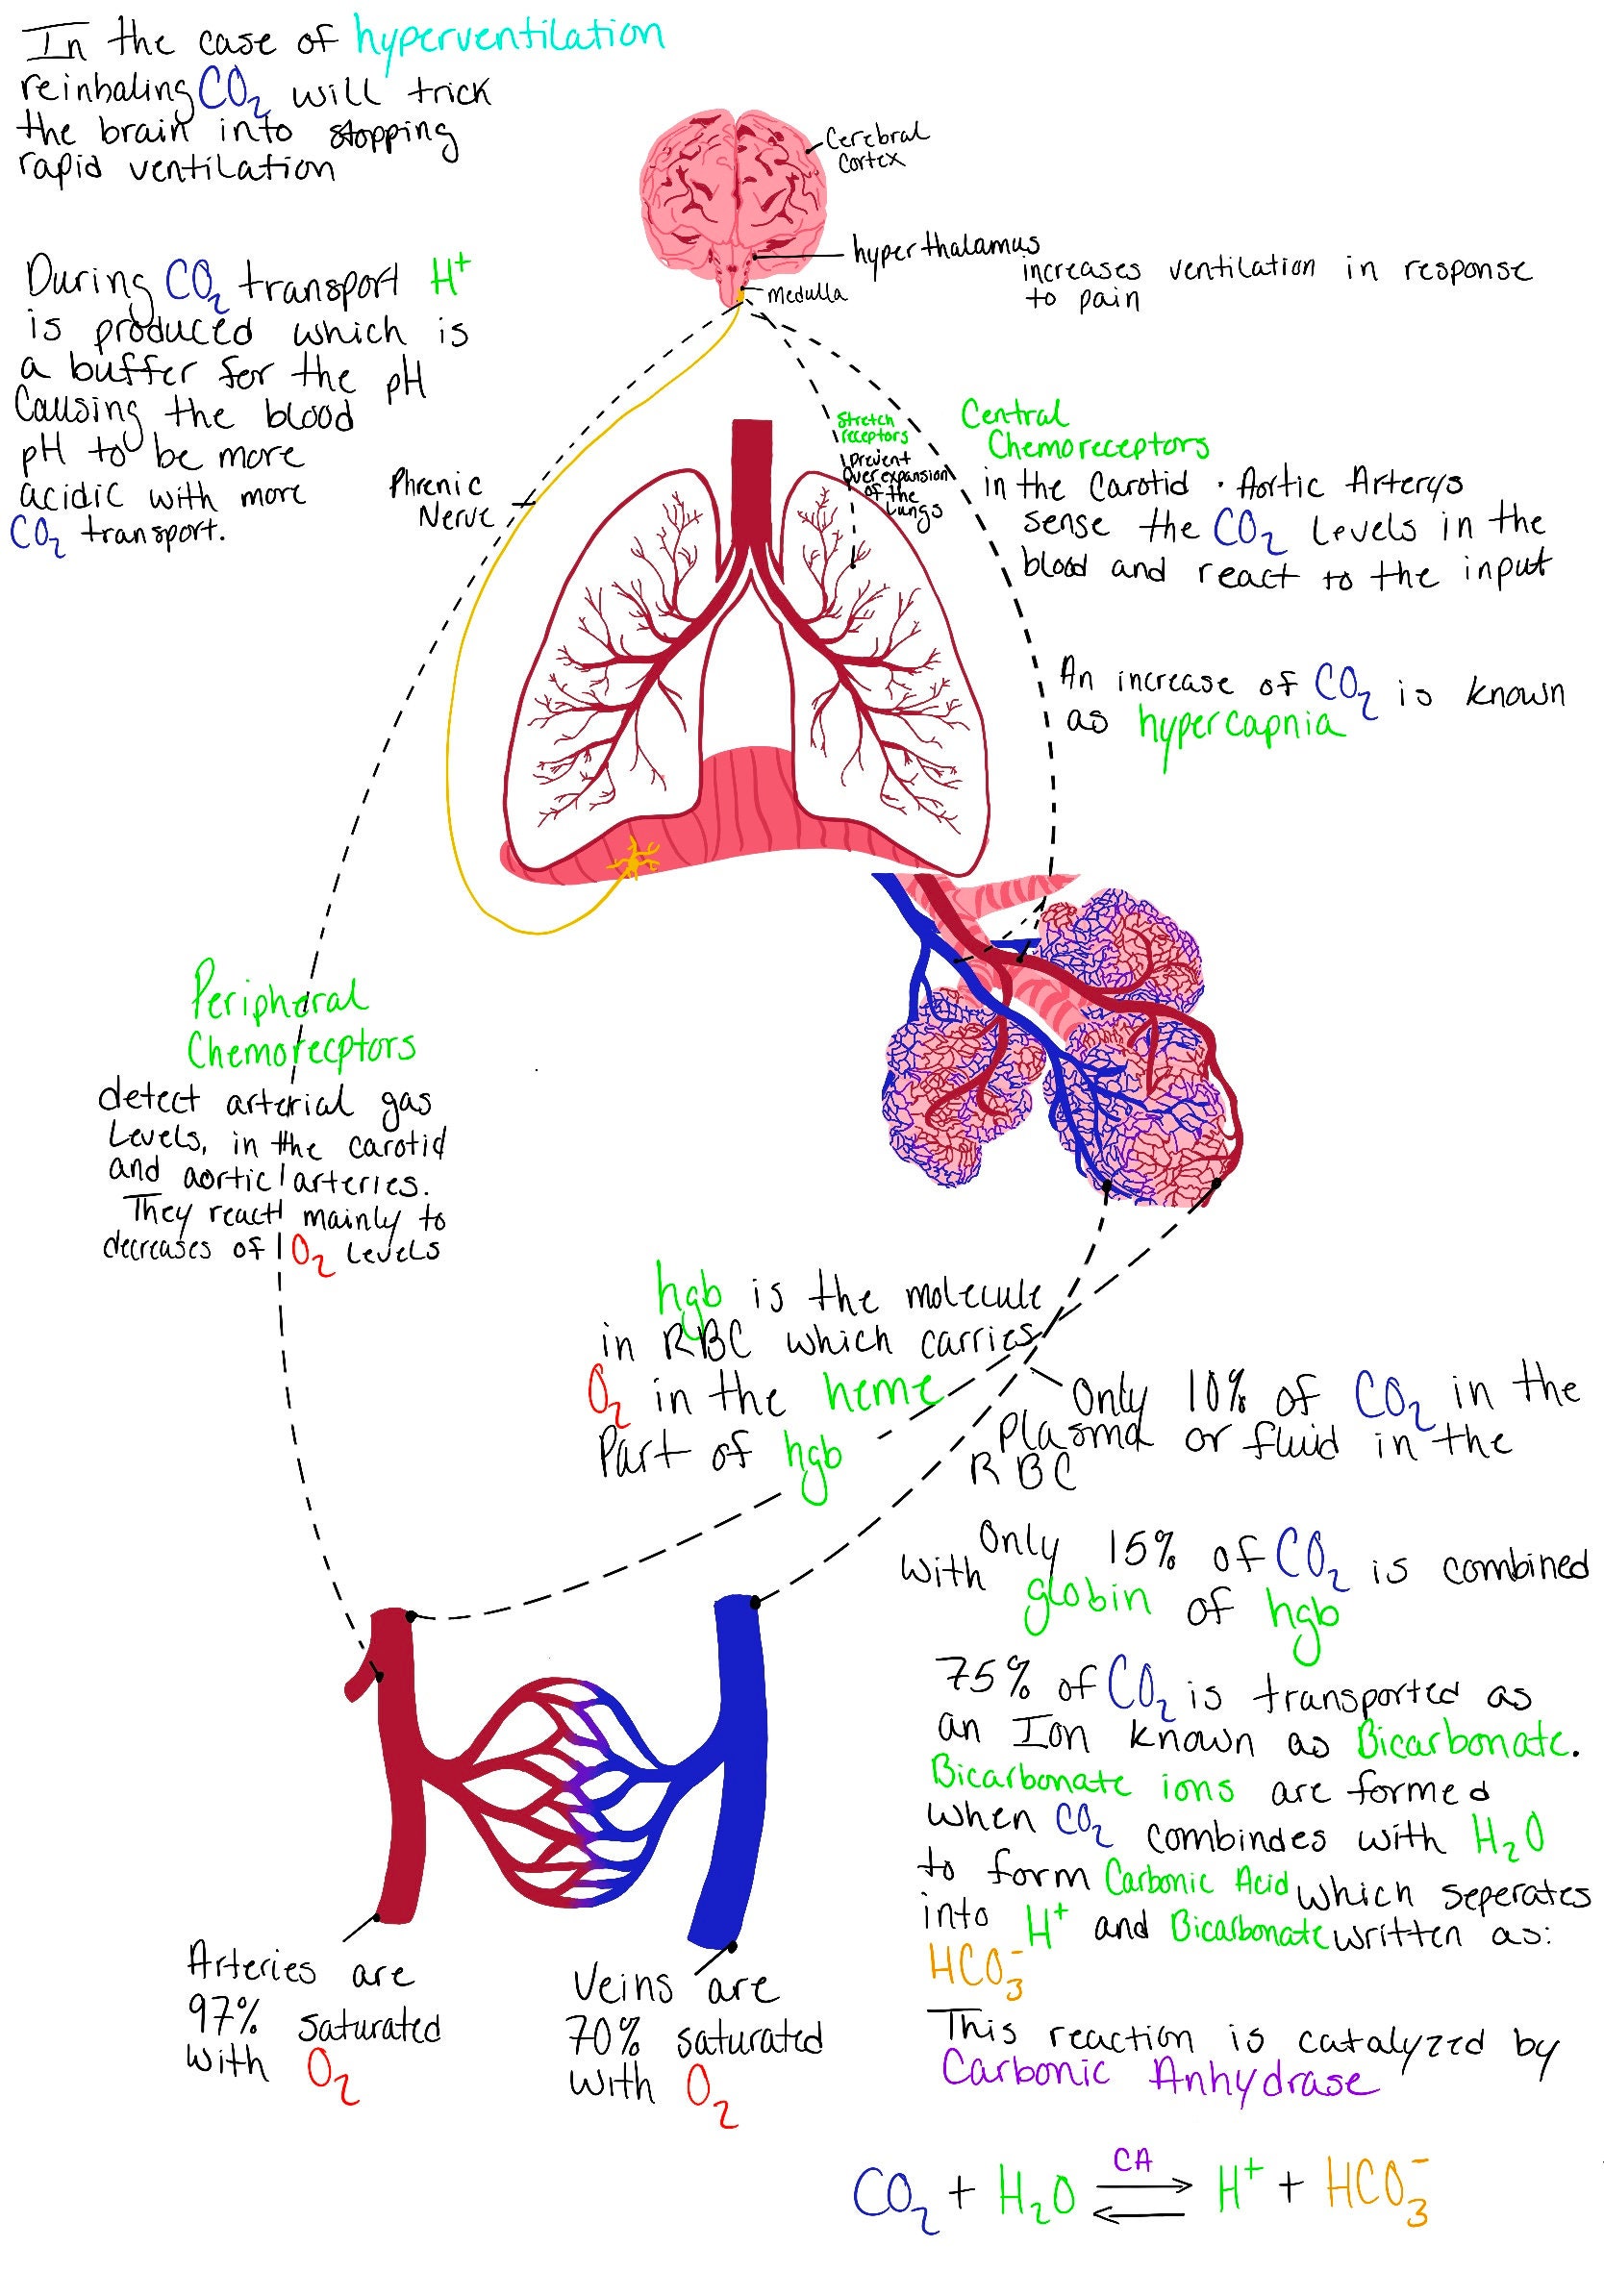 In the case of hyperventilation
reinhaling CO₂ will trick
the brain into stopping
rapid ventilation
Cerebral
Cortex
hyperthalamus
increases ventilation in response
to pain
Medulla
During CO₂ transport H⁺
is produced which is
a buffer for the pH
Causing the blood
pH to be more
acidic with more
CO₂ transport.
Phrenic
Nerve
Stretch
receptors
prevent
Over expansion
of the
Lungs
Central
Chemoreceptors
in the Carotid · Aortic Arterys
sense the CO₂ Levels in the
blood and react to the input
An increase of CO₂ is known
as hypercapnia
Peripheral
Chemorecptors
detect arterial gas
Levels, in the carotid
and aortic arteries.
They react mainly to
decreases of O₂ Levels
hgb is the molecule
in RBC which carries
O₂ in the heme
Part of hgb
Only 10% of CO₂ in the
Plasma or fluid in the
RBC
Only 15% of CO₂ is combined
with globin of hgb
75% of CO₂ is transported as
an Ion known as Bicarbonate.
Bicarbonate ions are formed
when CO₂ combindes with H₂O
to form Carbonic Acid which seperates
into H⁺ and Bicarbonate written as:
HCO₃⁻
This reaction is catalyzed by
Carbonic Anhydrase
Arteries are
97% saturated
with O₂
Veins are
70% saturated
with O₂
CA
CO₂ + H₂O ⇌ H⁺ + HCO₃⁻